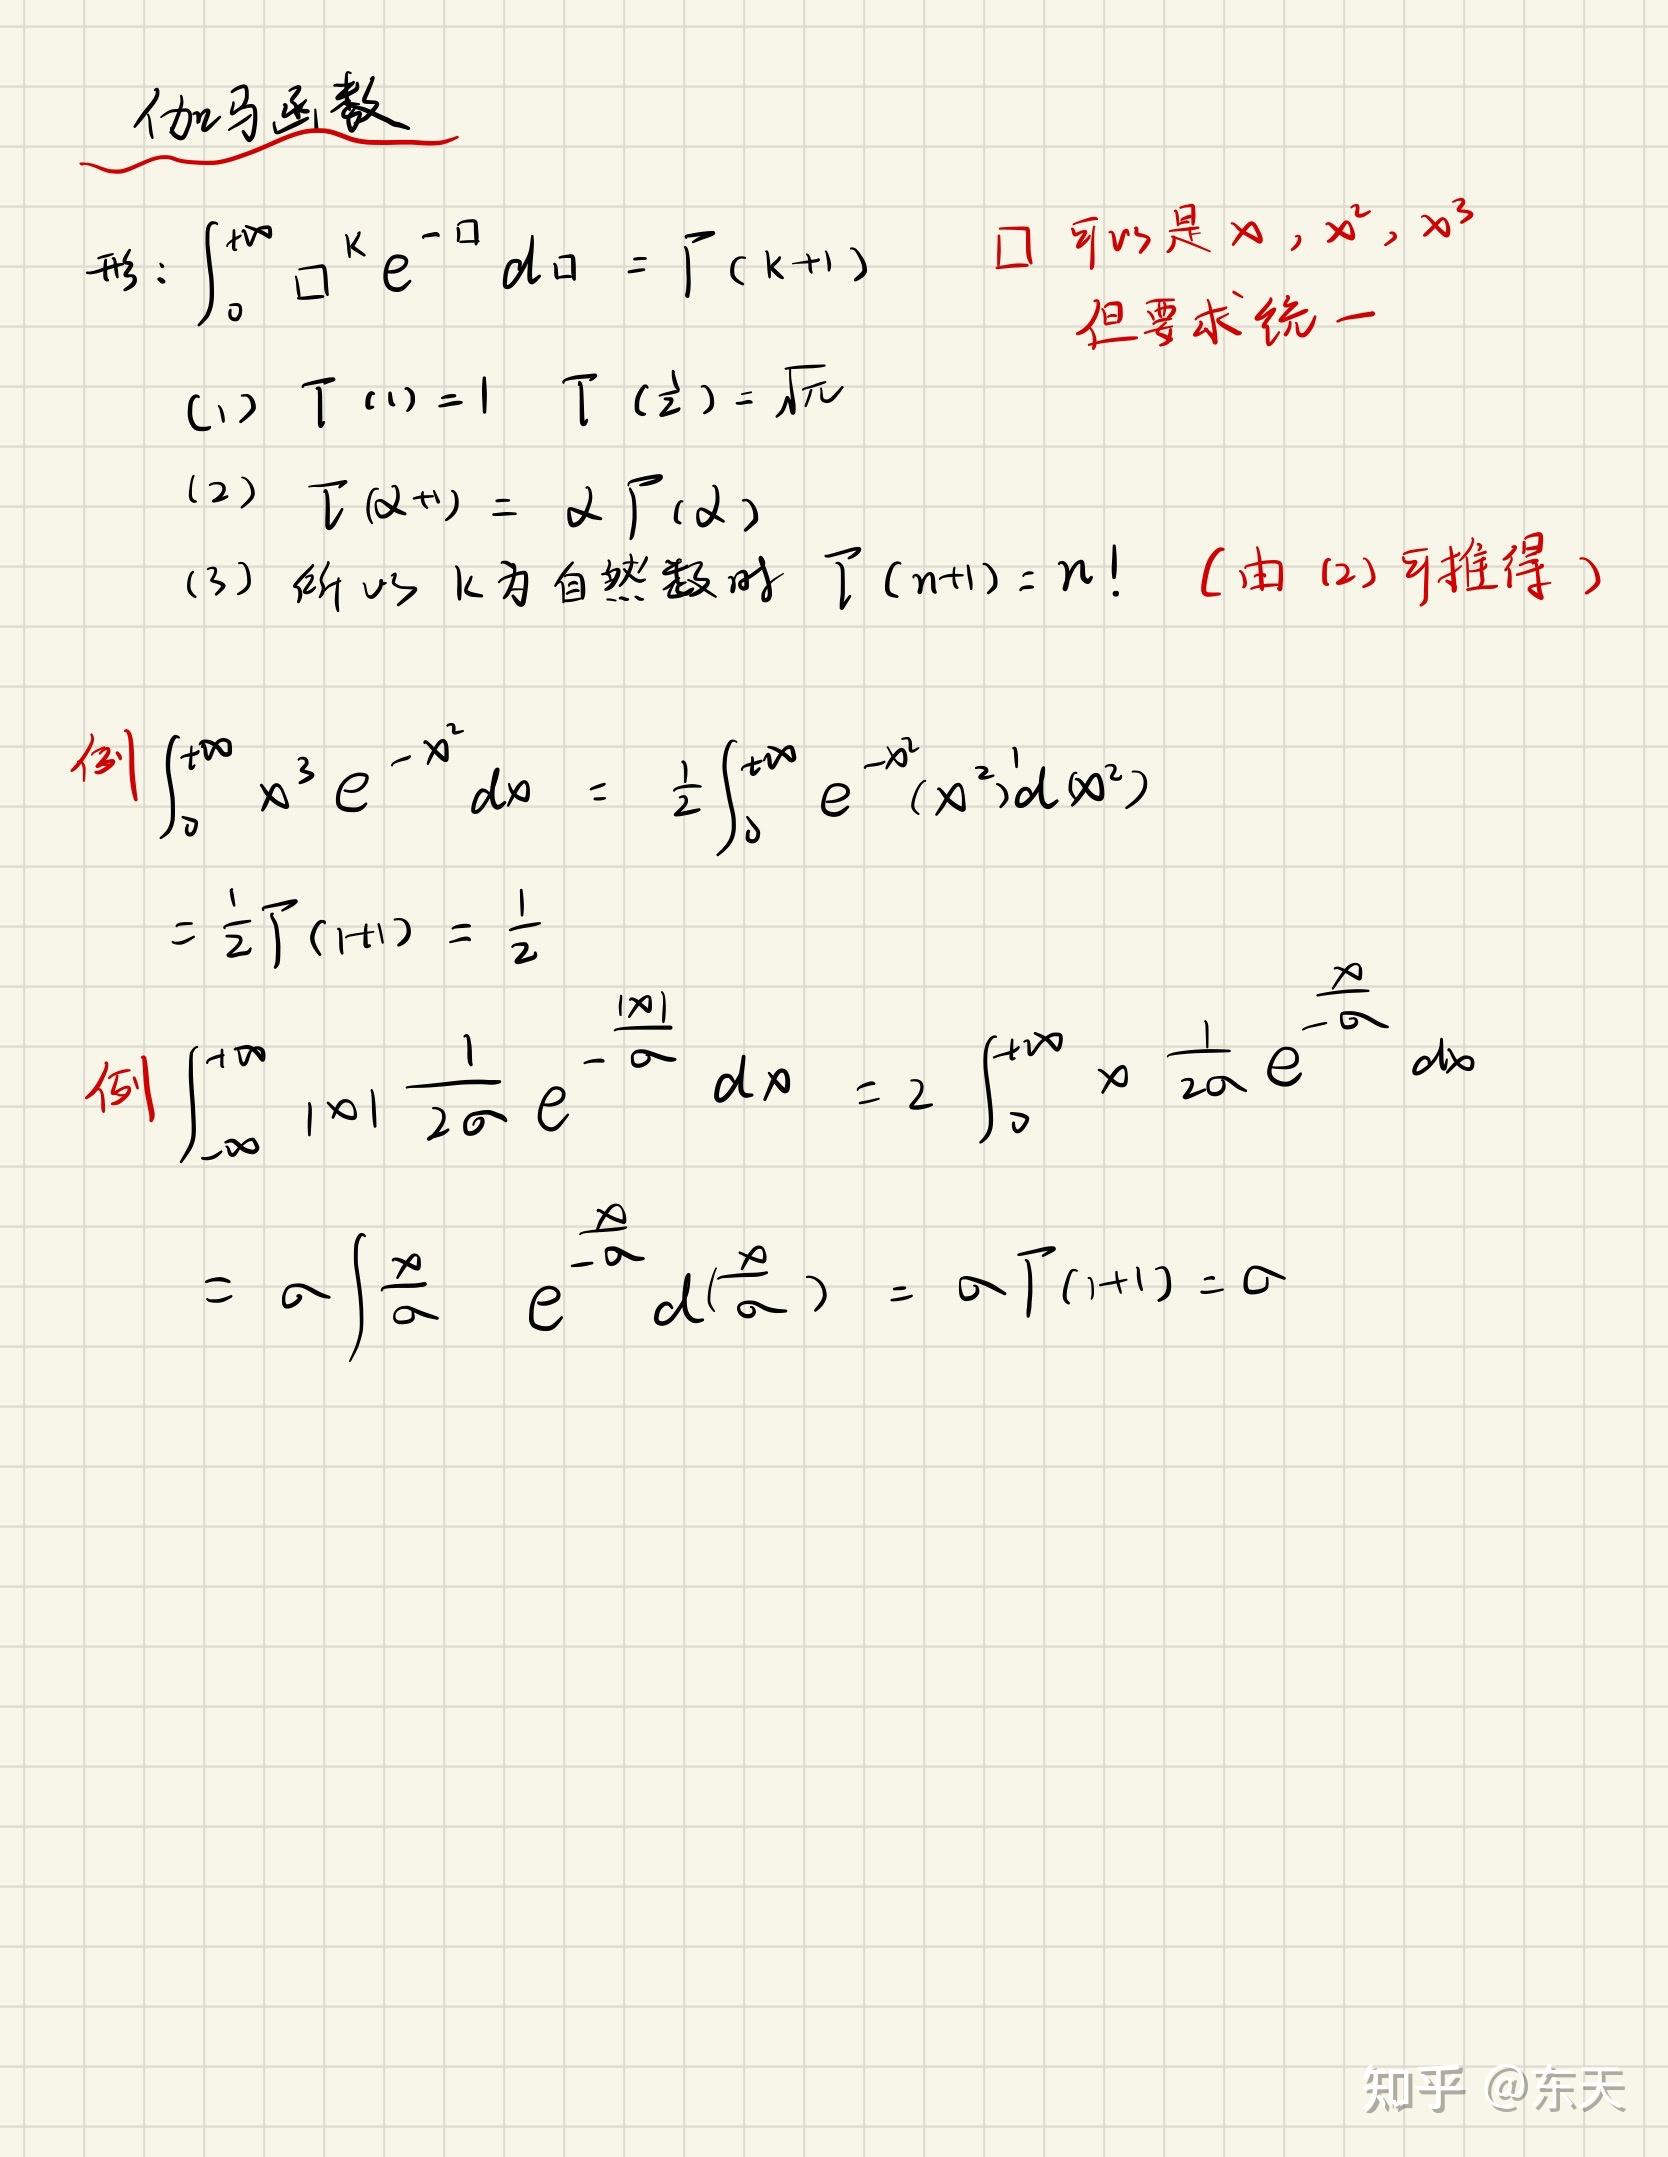 伽马函数
形: ∫₀^{+∞} □^k e^{-□} d□ = Γ(k+1)
□ 可以是 x, x², x³
但要求统一
(1) Γ(1)=1 Γ(1/2)=√π
(2) Γ(α+1) = αΓ(α)
(3) 所以 k为自然数时 Γ(n+1)=n! (由(2)可推得)
例 ∫₀^{+∞} x³ e^{-x²} dx = 1/2 ∫₀^{+∞} e^{-x²} (x²)¹ d(x²)
= 1/2 Γ(1+1) = 1/2
例 ∫_{-∞}^{+∞} |x| 1/(2σ) e^{-|x|/σ} dx = 2 ∫₀^{+∞} x 1/(2σ) e^{x/-σ} dx
= σ ∫ x/σ e^{x/-σ} d(x/σ) = σΓ(1+1) = σ
知乎 @东天